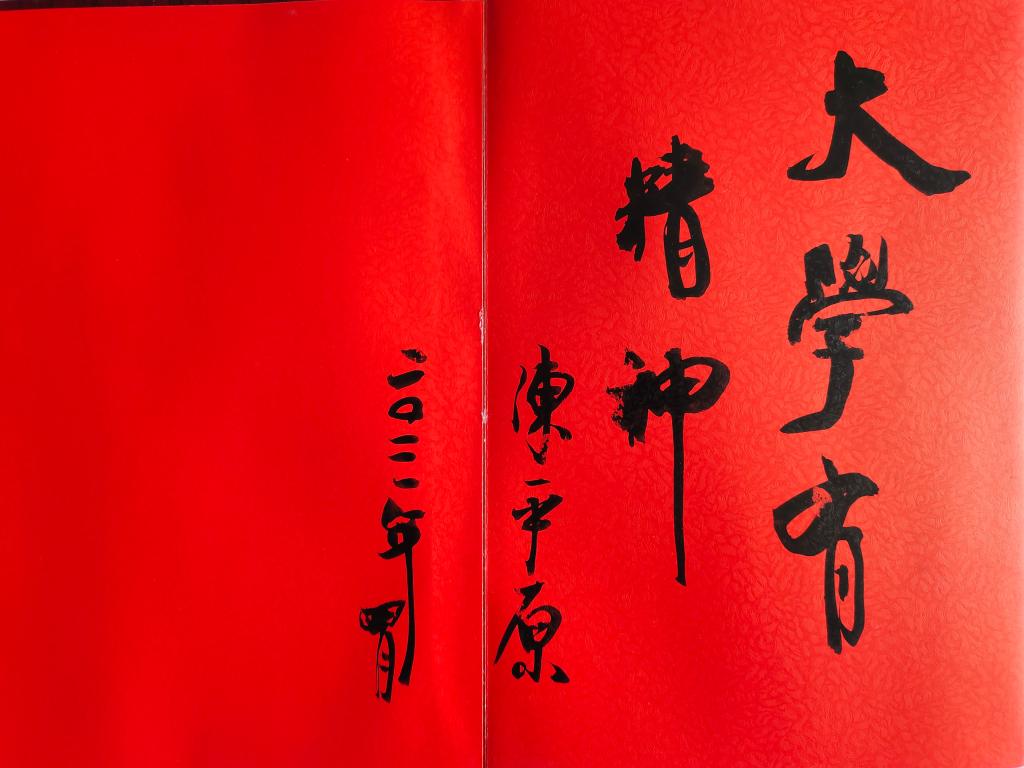 大學有
精神
陳平原
二〇二一年四月